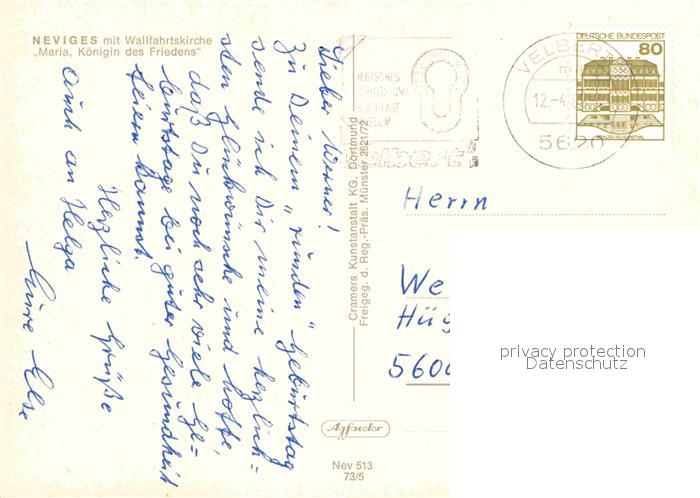 NEVIGES mit Wallfahrtskirche
„Maria, Königin des Friedens"
Lieber Werner!
Zu Deinem „runden" Geburtstag
sende ich Dir meine herzlich-
sten Glückwünsche und hoffe,
daß Du noch sehr viele Ge-
burtstage bei guter Gesundheit
feiern kannst.
Herzliche Grüße
auch an Helga
Eure Else
Cramers Kunstanstalt KG, Dortmund
Freigeg. d. Reg.-Präs. Münster 2621/72
Agfacolor
Nev 513
73/5
DEUTSCHES
SCHLOSS- UND
velbert
VELBERT
12.-4.
5620
DEUTSCHE BUNDESPOST
80
Herrn
We
Hüg
560
privacy protection
Datenschutz